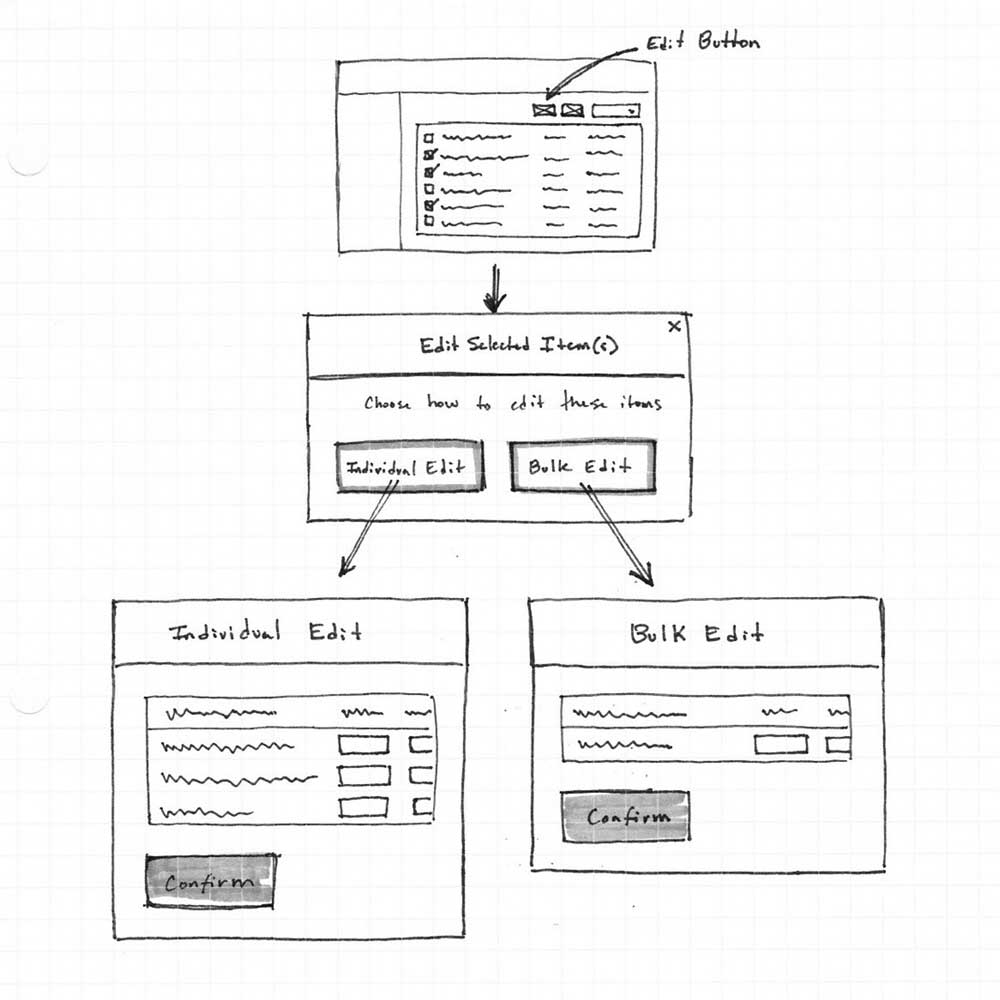 Edit Button
Edit Selected Item(s)
Choose how to edit these items
Individual Edit
Bulk Edit
Individual Edit
Bulk Edit
Confirm
Confirm